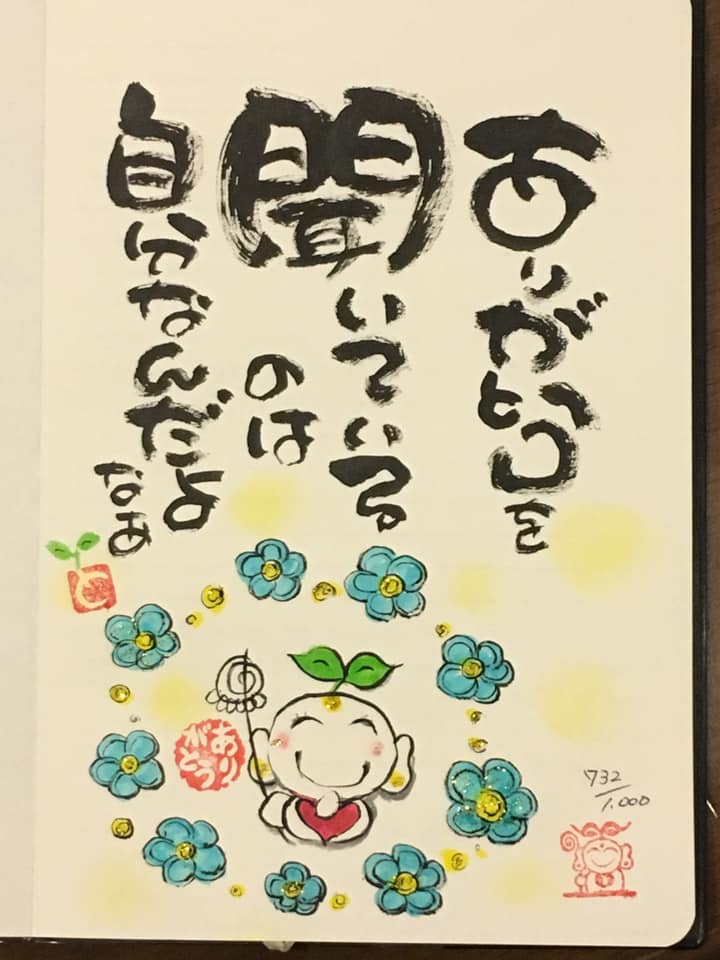 ありがとうを
聞いている
のは
自分なんだよ
あり
がとう
732
/1,000